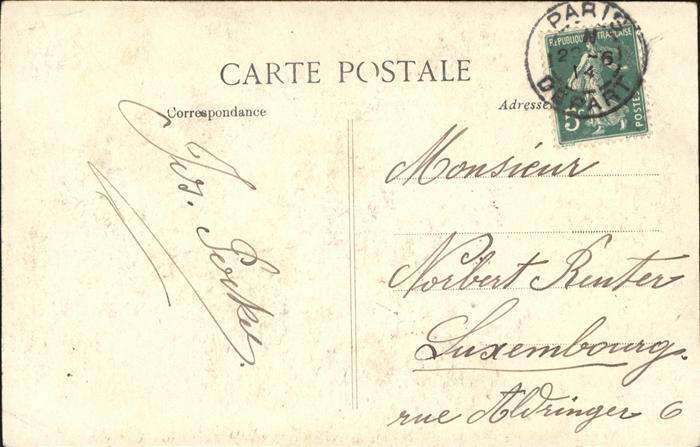 CARTE POSTALE
Correspondance
Adresse
PARIS
DÉPART
14
REPUBLIQUE FRANÇAISE
5c
POSTES
Jos.
Monsieur
Norbert Reuter
Luxembourg.
rue Aldringer 6